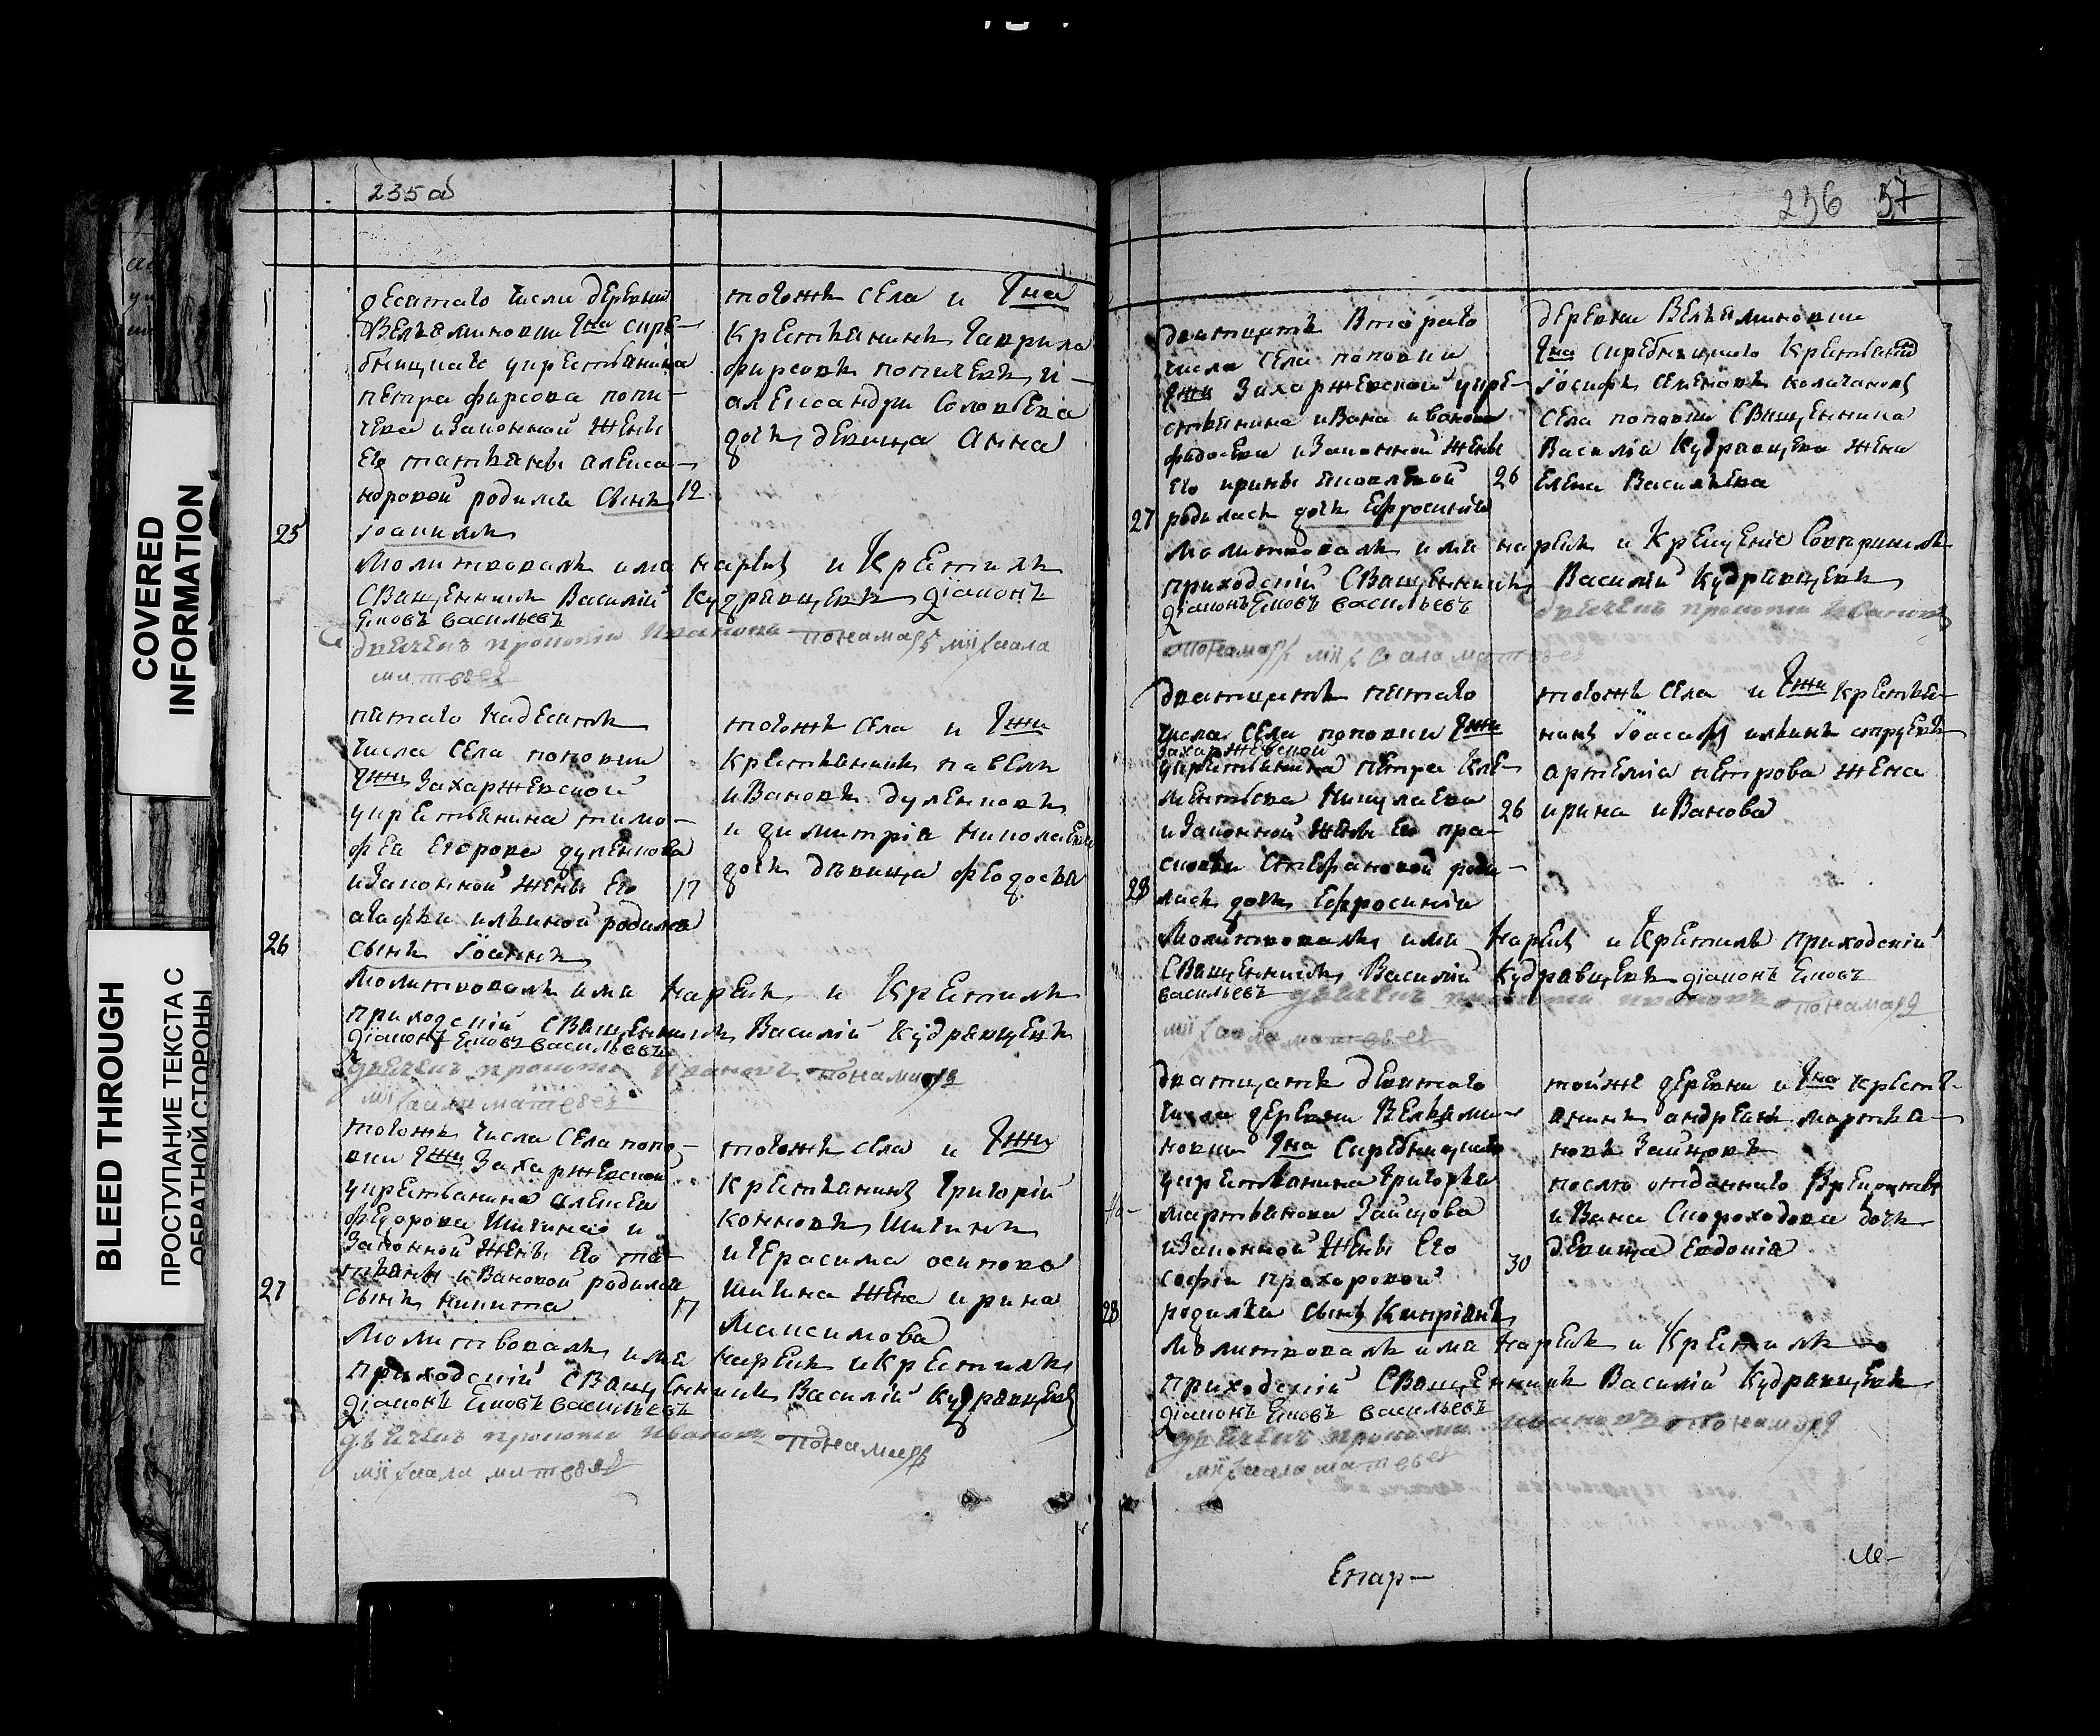 235 об
десятаго числа деревни
Вельяминовки Гна Скре-
бницкаго у крестьянина
петра фирсова попи-
чева и законной жены
Его татьяны алекса-
ндровой родился сынъ 12
25
Іоакимъ
тогожъ села и Гна
крестьянинъ Гаврила
фирсовъ попичевъ и
александры Соловьева
дочь девица Анна
Молитвовалъ имя нарекъ и крестилъ
Священникъ Василій Кудрявцевъ діаконъ
Ековъ васильевъ
дьячекъ прокопій Ивановъ понамарь миҳаила
матвеев
пятаго надесять
числа села поповки
Гжи Захаржевской
у крестьянина тимо-
фея Егорова дуленкова
и законной жены Его 17
агафьи ильиной родился
26
сынъ Іоаннъ
тогожъ села и Гжи
крестьянинъ павелъ
ивановъ дуленковъ
и димитрія николаева
дочь дѣвица феодосья
Молитвовалъ имя нарекъ и крестилъ
приходскій Священникъ Василій Кудрявцевъ
діаконъ Ековъ васильевъ
дьячекъ прокопій Ивановъ понамарь
миҳаила матвеев
тогожъ числа села попо-
вки Гжи Захаржевской
у крестьянина алексея
федорова Шигина и
законной жены Его та-
тьяны ивановой родился
27
сынъ никита 17
тогожъ села и Гжи
крестьянинъ Григорій
кононовъ Шигинъ
и Герасима осипова
шигина жена ирина
Максимова
Молитвовалъ имя нарекъ и крестилъ
приходскій Священникъ Василій Кудрявцевъ
діаконъ Ековъ васильевъ
дьячекъ прокопій Ивановъ понамарь
миҳаила матвеев
236 57
дватцать втораго
числа села поповки
Гжи Захаржевской у кре-
стьянина ивана иванова
фадеева и законной жены
Его ирины яковлевой 26
27
родилась дочь Ефросинія
деревни Вельяминовки
Гна Скребницкаго крестьянинъ
Іосифъ семеновъ колачановъ
села поповки Священника
Василія Кудрявцева жена
Елена Васильева
Молитвовалъ имя нарекъ и крещеніе совершилъ
приходскій Священникъ Василій Кудрявцевъ
діаконъ Ековъ васильевъ дьячекъ прокопій Ивановъ
понамарь миҳаила матвеев
дватцать пятаго
числа села поповки Гжи
Захаржевской
у крестьянина петра Кле-
ментьева Никулаева
и законной жены Его пра- 26
сковьи Стефановой роди-
28
лась дочь Ефросинія
тогожъ села и Гжи крестья-
нинъ Іоасафъ ильинъ струевъ
артемія петрова жена
ирина иванова
Молитвовалъ имя нарекъ и крестилъ приходскій
Священникъ Василій Кудрявцевъ діаконъ Ековъ
васильевъ дьячекъ прокопій ивановъ понамарь
миҳаила матвеев
дватцать девятаго
числа деревни Вельями-
новки Гна Скребницкаго
у крестьянина Григорья
мартьянова Зайцова
и законной жены Его
софіи прохоровой 30
28
родился сынъ Кипріянъ
тойже деревни и Гна крестья-
анинъ андреянъ мартья-
новъ Зайцовъ
ивана Скороходова дочь
девица Евдокія
Молитвовалъ имя нарекъ и крестилъ
приходскій Священникъ Василій Кудрявцевъ
діаконъ Ековъ васильевъ
дьячекъ прокопій ивановъ понамарь
миҳаила матвеев
COVERED
INFORMATION
BLEED THROUGH
ПРОСТУПАНИЕ ТЕКСТА С
ОБРАТНОЙ СТОРОНЫ